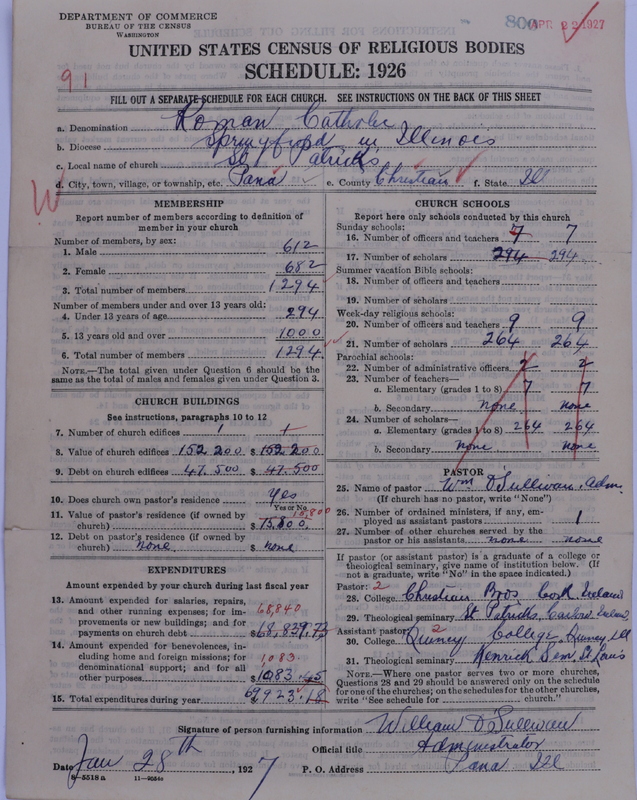 DEPARTMENT OF COMMERCE
BUREAU OF THE CENSUS
WASHINGTON
APR 22 1927
UNITED STATES CENSUS OF RELIGIOUS BODIES
SCHEDULE: 1926
91
FILL OUT A SEPARATE SCHEDULE FOR EACH CHURCH. SEE INSTRUCTIONS ON THE BACK OF THIS SHEET
a. Denomination Roman Catholic
b. Diocese Springfield in Illinois
c. Local name of church St Patricks
d. City, town, village, or township, etc. Pana e. County Christian f. State Ill
W
MEMBERSHIP
Report number of members according to definition of member in your church
Number of members, by sex:
1. Male 612
2. Female 682
3. Total number of members 1294
Number of members under and over 13 years old:
4. Under 13 years of age 294
5. 13 years old and over 1000
6. Total number of members 1294
NOTE.—The total given under Question 6 should be the same as the total of males and females given under Question 3.
CHURCH BUILDINGS
See instructions, paragraphs 10 to 12
7. Number of church edifices 1 1
8. Value of church edifices 152 200 $ 152 200
9. Debt on church edifices 47.500 $ 47.500
10. Does church own pastor's residence? Yes
Yes or No
11. Value of pastor's residence (if owned by church) 15,800 $ 15.800
12. Debt on pastor's residence (if owned by church) none $ none
EXPENDITURES
Amount expended by your church during last fiscal year
13. Amount expended for salaries, repairs, and other running expenses; for improvements or new buildings; and for payments on church debt 68,840 $ 68,839.73
14. Amount expended for benevolences, including home and foreign missions; for denominational support; and for all other purposes 1,083 $ 1083.45
15. Total expenditures during year 69923.18
CHURCH SCHOOLS
Report here only schools conducted by this church
Sunday schools:
16. Number of officers and teachers 7 7
17. Number of scholars 294 294
Summer vacation Bible schools:
18. Number of officers and teachers
19. Number of scholars
Week-day religious schools:
20. Number of officers and teachers 9 9
21. Number of scholars 264 264
Parochial schools:
22. Number of administrative officers 2 2
23. Number of teachers—
a. Elementary (grades 1 to 8) 7 7
b. Secondary none none
24. Number of scholars—
a. Elementary (grades 1 to 8) 264 264
b. Secondary none none
PASTOR
25. Name of pastor Wm O'Sullivan, Adm.
(If church has no pastor, write "None")
26. Number of ordained ministers, if any, employed as assistant pastors 1
27. Number of other churches served by the pastor or his assistants none none
If pastor (or assistant pastor) is a graduate of a college or theological seminary, give name of institution below. (If not a graduate, write "No" in the space indicated.)
Pastor: 2
28. College Christian Bros Cork Ireland
29. Theological seminary St Patricks, Carlow Ireland
Assistant pastor: 2
30. College Quincy College, Quincy Ill
31. Theological seminary Kenrick Sem St Louis
NOTE.—Where one pastor serves two or more churches, Questions 28 and 29 should be answered only on the schedule for one of the churches; on the schedules for the other churches, write "See schedule for ........ church."
Signature of person furnishing information William O'Sullivan
Official title Administrator
Date Jan 28th, 1927 P. O. Address Pana Ill
8—5518 a